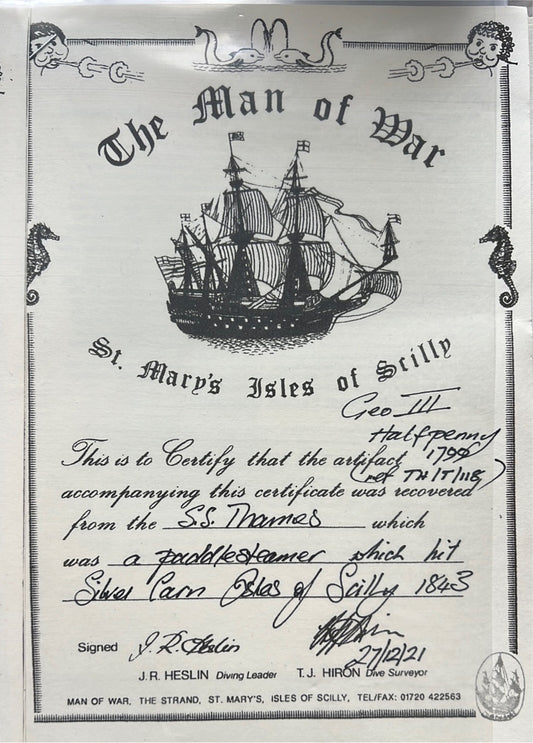 The Man of War
St. Mary's Isles of Scilly
Geo III
Halfpenny
1799
This is to Certify that the artifact
(ref TH/T/118)
accompanying this certificate was recovered
from the S.S. Thames which
was a paddlesteamer which hit
Silver Carn Isles of Scilly 1843
Signed J.R. Heslin
27/12/21
J.R. HESLIN Diving Leader T.J. HIRON Dive Surveyor
MAN OF WAR, THE STRAND, ST. MARY'S, ISLES OF SCILLY, TEL/FAX: 01720 422563